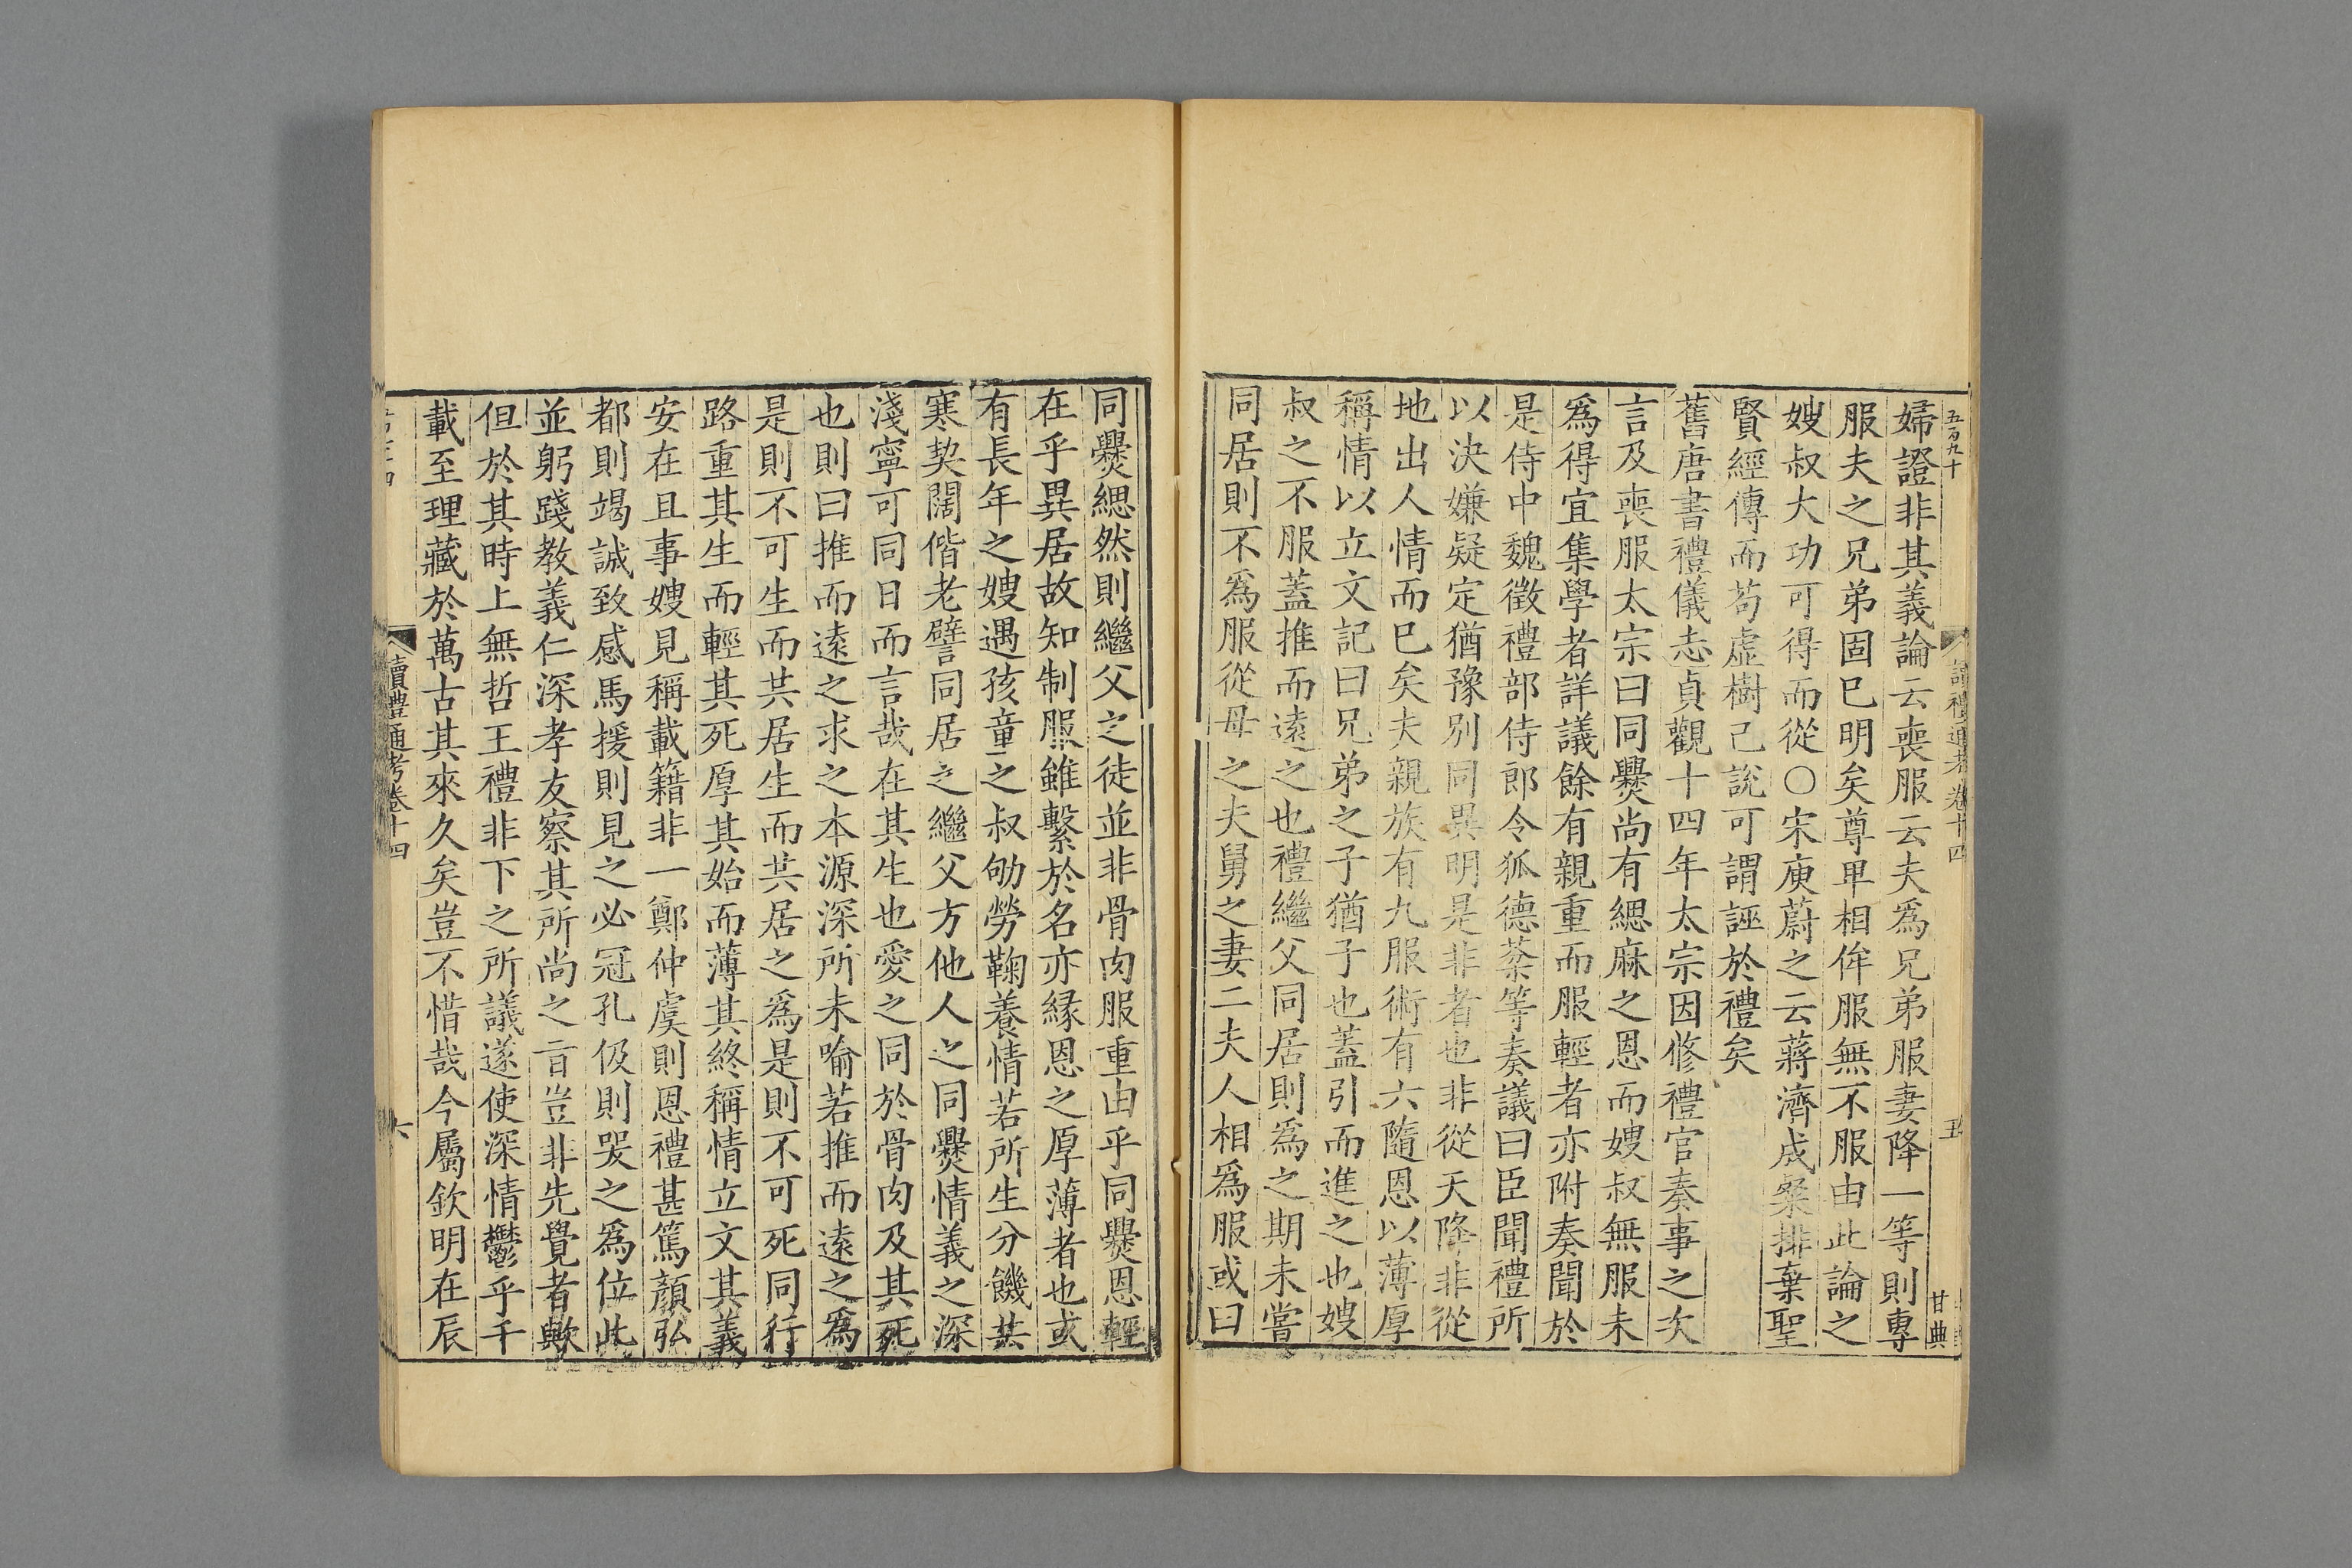 五百九十
讀禮通考卷十四
五
甘典
婦證非其義論云喪服云夫爲兄弟服妻降一等則專
服夫之兄弟固已明矣尊卑相侔服無不服由此論之
嫂叔大功可得而從〇宋庾蔚之云蔣濟成粲排棄聖
賢經傳而苟虛樹己說可謂誣於禮矣
舊唐書禮儀志貞觀十四年太宗因修禮官奏事之次
言及喪服太宗曰同爨尚有緦麻之恩而嫂叔無服未
爲得宜集學者詳議餘有親重而服輕者亦附奏聞於
是侍中魏徵禮部侍郎令狐德棻等奏議曰臣聞禮所
以決嫌疑定猶豫别同異明是非者也非從天降非從
地出人情而已矣夫親族有九服術有六隨恩以薄厚
稱情以立文記曰兄弟之子猶子也蓋引而進之也嫂
叔之不服蓋推而遠之也禮繼父同居則爲之期未嘗
同居則不爲服從母之夫舅之妻二夫人相爲服或曰
同爨緦然則繼父之徒並非骨肉服重由乎同爨恩輕
在乎異居故知制服雖繫於名亦緣恩之厚薄者也或
有長年之嫂遇孩童之叔劬勞鞠養情若所生分饑共
寒契闊偕老譬同居之繼父方他人之同爨情義之深
淺寧可同日而言哉在其生也愛之同於骨肉及其死
也則曰推而遠之求之本源深所未喻若推而遠之爲
是則不可生而共居生而共居之爲是則不可死同行
路重其生而輕其死厚其始而薄其終稱情立文其義
安在且事嫂見稱載籍非一鄭仲虞則恩禮甚篤顏弘
都則竭誠致感馬援則見之必冠孔伋則哭之爲位此
並躬踐教義仁深孝友察其所尚之旨豈非先覺者歟
但於其時上無哲王禮非下之所議遂使深情鬱乎千
載至理藏於萬古其來久矣豈不惜哉今屬欽明在辰
讀禮通考卷十四
六